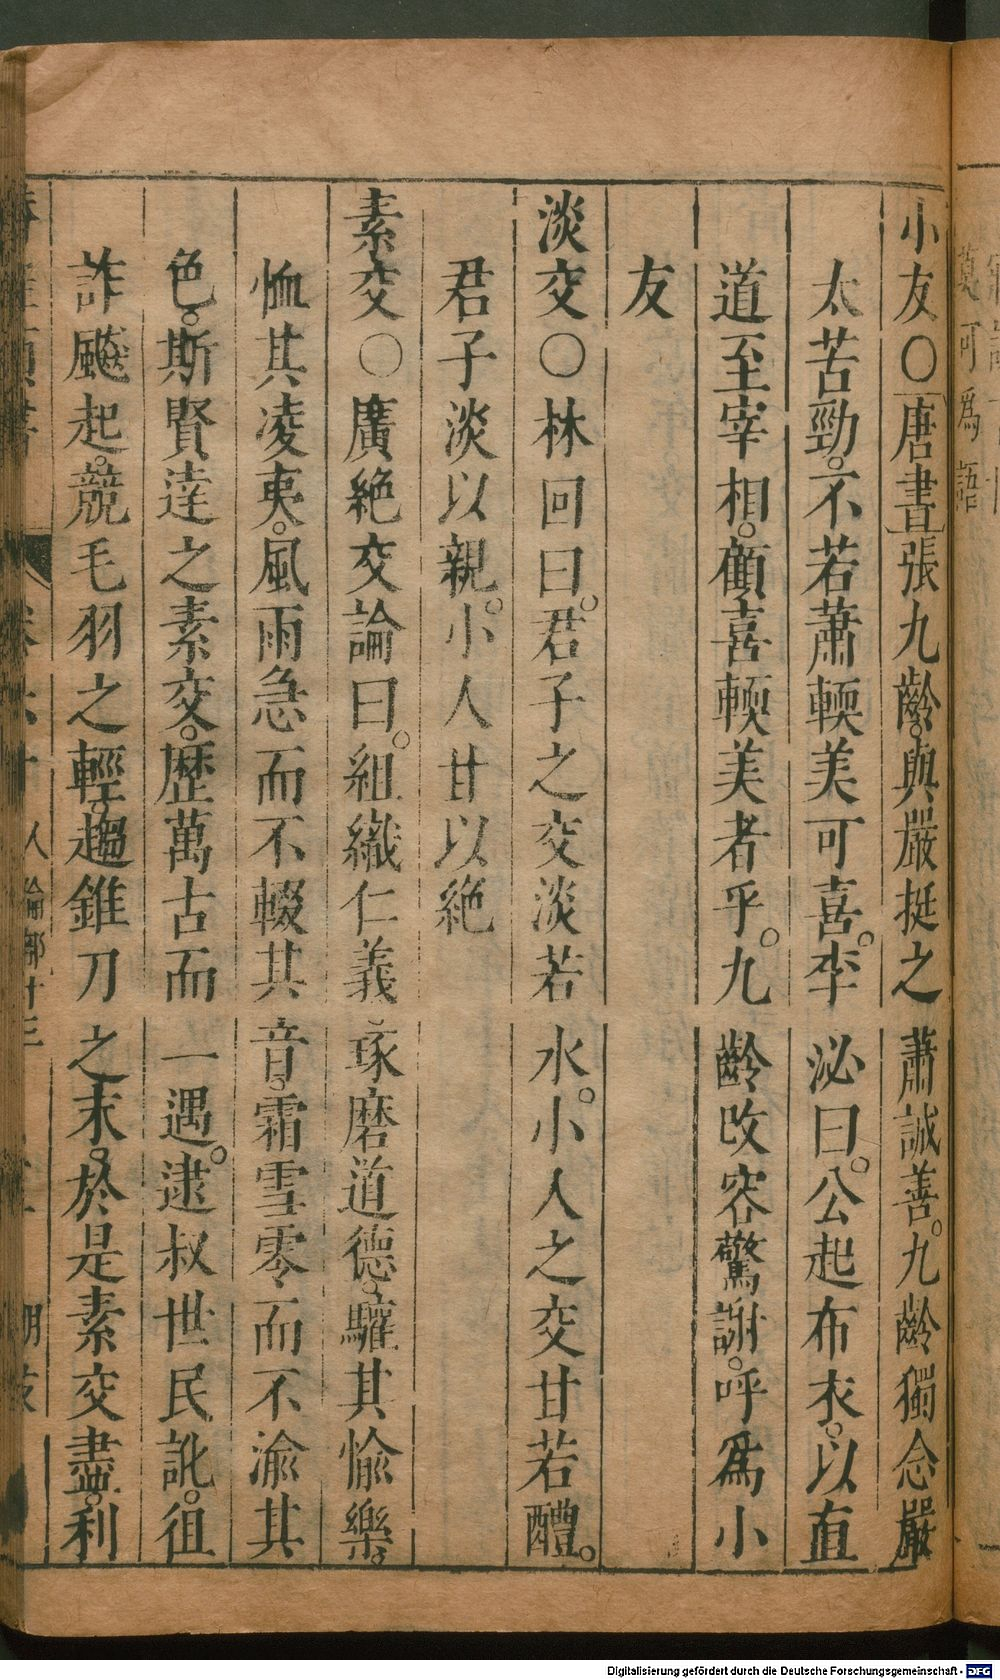 小友〇唐書張九齡。與嚴挺之蕭誠善。九齡獨念嚴
太苦勁。不若蕭輭美可喜。李泌曰。公起布衣。以直
道至宰相。顧喜輭美者乎。九齡改容驚謝。呼爲小
友
淡交〇林回曰。君子之交淡若水。小人之交甘若醴。
君子淡以親。小人甘以絶
素交〇廣絶交論曰。組織仁義琢磨道德。驩其愉樂。
恤其凌夷。風雨急而不輟其音。霜雪零而不渝其
色。斯賢達之素交。歷萬古而一遇。逮叔世民訛。徂
詐飈起。競毛羽之輕。趨錐刀之末。於是素交盡。利
人倫部十三
Digitalisierung gefördert durch die Deutsche Forschungsgemeinschaft - DFG